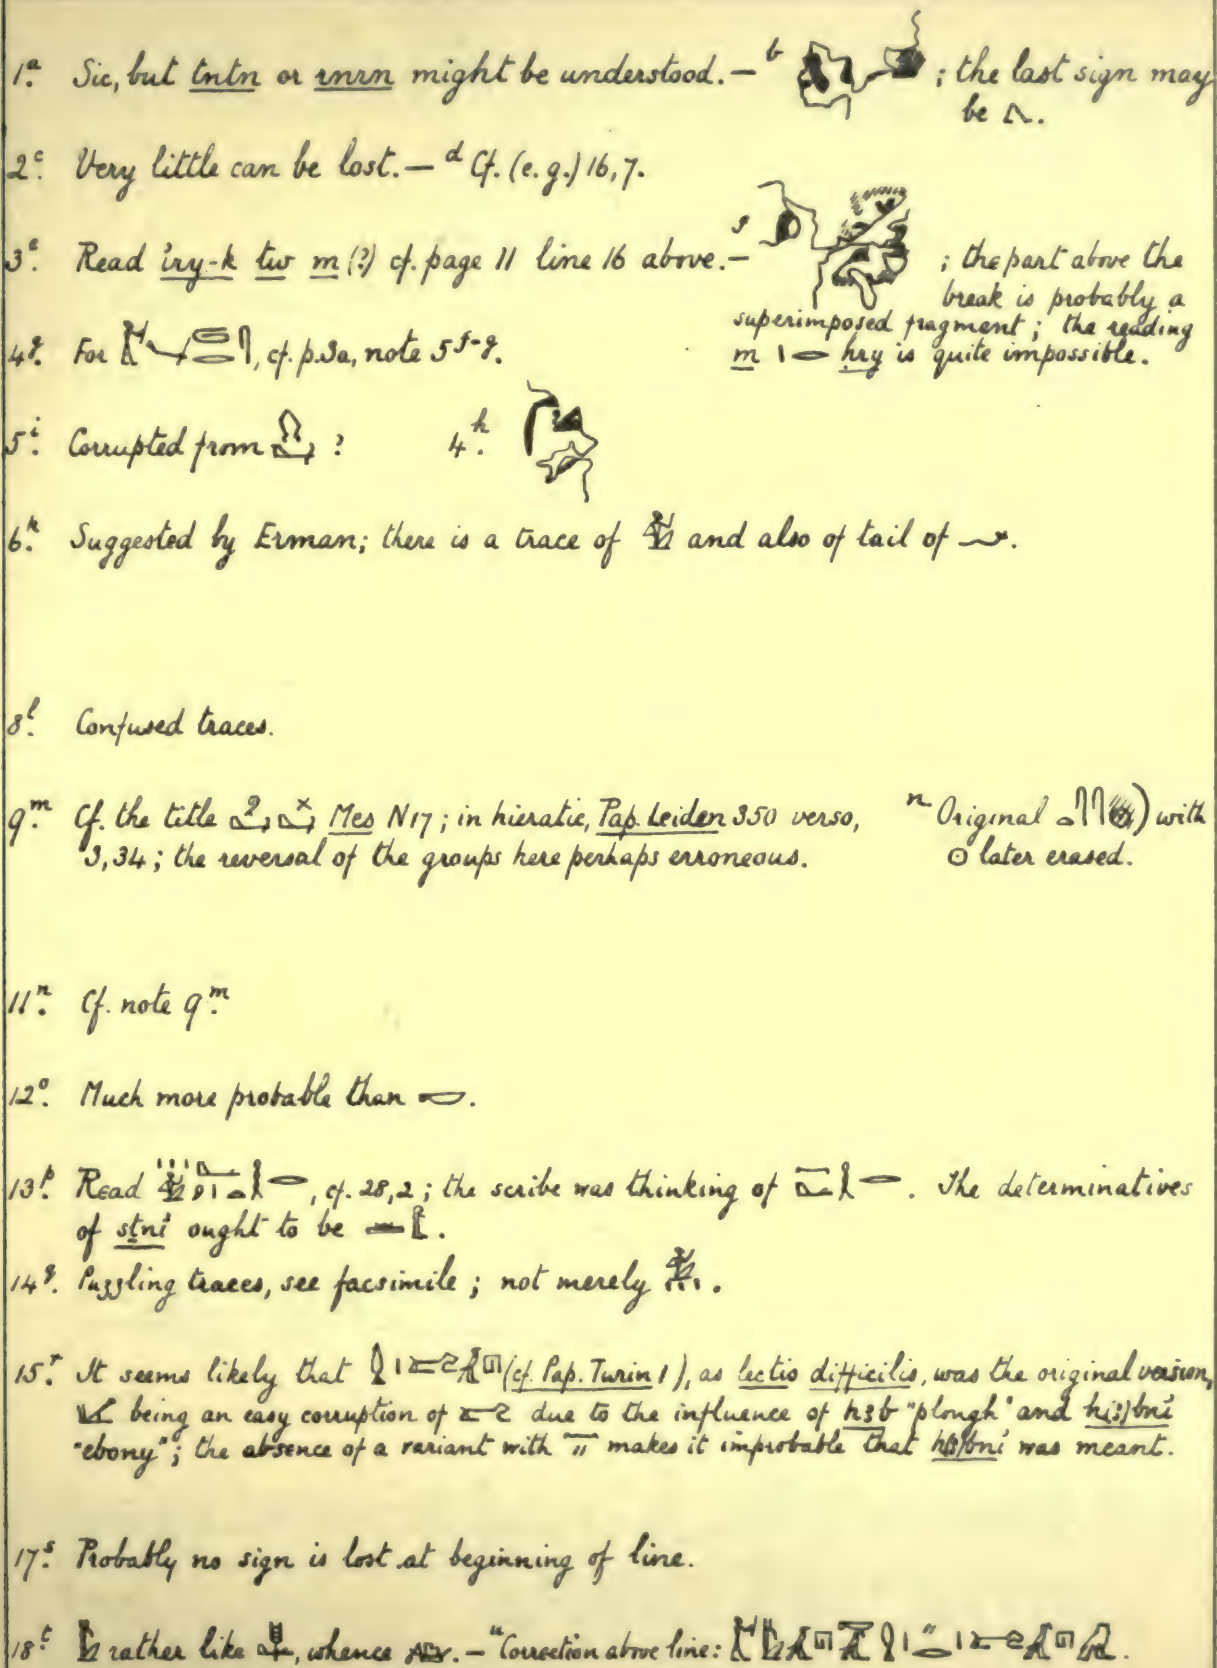 1ᵃ. Sic, but tntn or rnrn might be understood. — ᵇ ; the last sign may
be .
2ᶜ. Very little can be lost. — ᵈ Cf. (e.g.) 16,7.
3ᵉ. Read iry-k tw m (?) cf. page 11 line 16 above. — ; the part above the
break is probably a
superimposed fragment; the reading
m hry is quite impossible.
4ᵍ. For , cf. p. 3a, note 5ᶠ⁻ᵍ.
5ⁱ. Corrupted from ? 4ʰ.
6ᵏ. Suggested by Erman; there is a trace of and also of tail of .
8ˡ. Confused traces.
9ᵐ. Cf. the title Mes N17; in hieratic, Pap. Leiden 350 verso,
3,34; the reversal of the groups here perhaps erroneous.
ⁿ Original with
⊙ later erased.
11ⁿ. Cf. note 9ᵐ.
12ᵒ. Much more probable than .
13ᵖ. Read , cf. 28,2; the scribe was thinking of . The determinatives
of stni ought to be .
14ᑫ. Puzzling traces, see facsimile; not merely .
15ʳ. It seems likely that (cf. Pap. Turin 1), as lectio difficilis, was the original version,
being an easy corruption of due to the influence of h3b "plough" and h(3)bni
"ebony"; the absence of a variant with makes it improbable that h(3)bni was meant.
17ˢ. Probably no sign is lost at beginning of line.
18ᵗ. rather like , whence . — ᵘ Correction above line: .